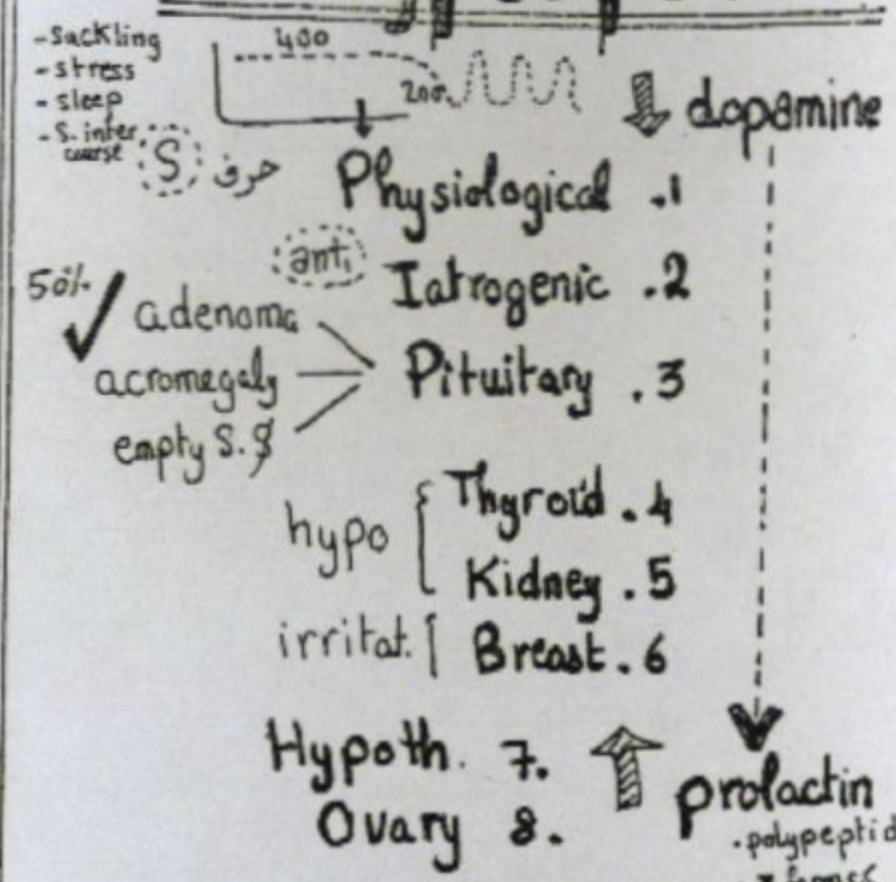 -Suckling
-stress
-sleep
-S.inter
course
S حرف
400
200
↓ dopamine
Physiological .1
anti
Iatrogenic .2
50%
✓ adenoma
acromegaly
empty S.S
Pituitary .3
hypo
Thyroid .4
Kidney .5
irritat.
Breast .6
Hypoth. 7.
Ovary 8.
↑ prolactin
.polypeptid